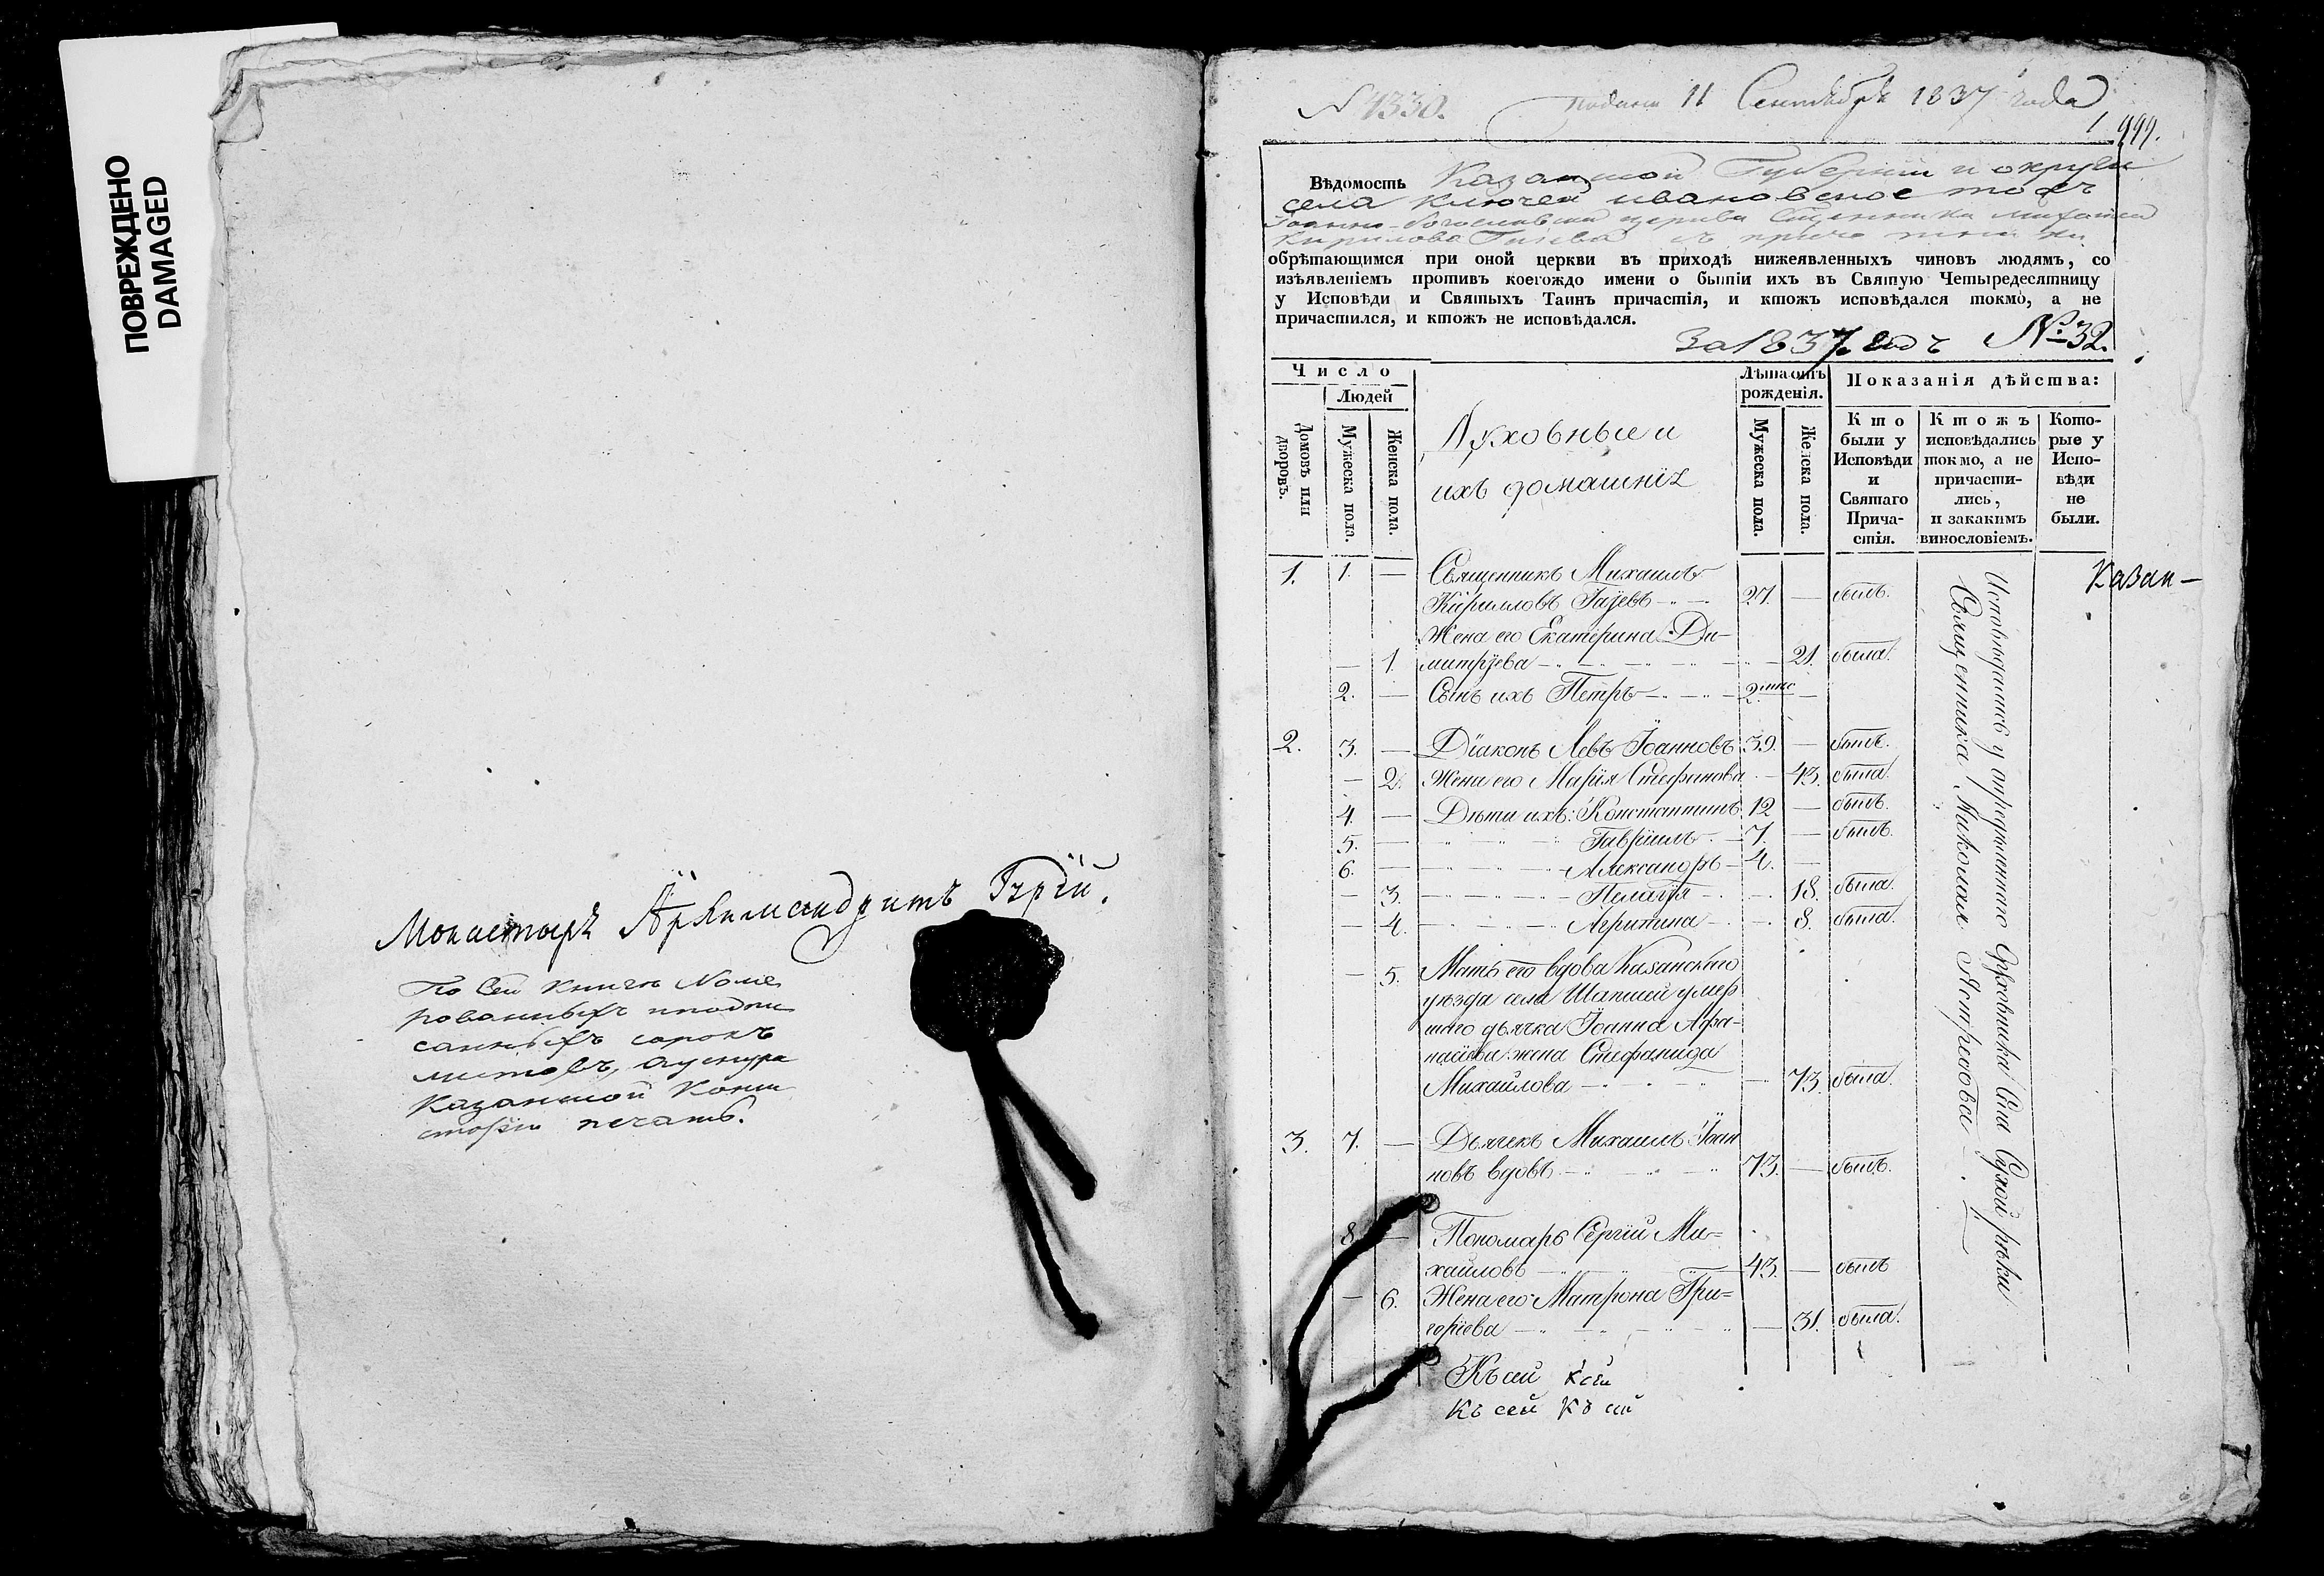 ПОВРЕЖДЕНО
DAMAGED
Монастыря Архимандритъ Гурій.
По сей книге номе
рованныхъ и подпи
санныхъ сорокъ
листовъ, а у снура
Казанской Конси
сторіи печать.
N 4330.
Подана 11 Сентября 1837 года
1 999.
Вѣдомость Казанской Губерніи и округи
села Ключей Ивановское тожъ
Іоанно-Богословской церкви Священника Михаила
Кирилова Гаіева съ причетники
обрѣтающимся при оной церкви въ приходѣ нижеявленныхъ чиновъ людямъ, со
изѣявленіемъ противъ коегождо имени о бытіи ихъ въ Святую Четыредесятницу
у Исповѣди и Святыхъ Таинъ причастія, и ктожъ исповѣдался токмо, а не
причастился, и ктожъ не исповѣдался.
За 1837 годъ №32.
Число
Людей
Домовъ или дворовъ.
Мужеска пола.
Женска пола.
Духовные и
ихъ домашніе
Лѣта отъ
рожденія.
Мужеска пола.
Женска пола.
Показанія дѣйства:
Кто
были у
Исповѣди
и
Святаго
Прича-
стія.
Ктожъ
исповѣдались
токмо, а не
причасти-
лись,
и закакимъ
винословіемъ.
Кото-
рые у
Испо-
вѣди
не
были.
1. 1. — Священникъ Михаилъ
Кѵрилловъ Гаіевъ 27. — былъ.
Жена его Екатерина Ди-
— 1. митріева — 21. была.
2. — Сынъ ихъ Петръ 2. —
2. 3. — Діаконъ Левъ Іоанновъ 39. — былъ.
— 2. Жена его Марія Стефанова — 43. была.
4. — Дѣти ихъ: Константинъ 12 — былъ.
5. — Гавріилъ 7. — былъ.
6. — Александръ 4. —
— 3. Пелагія — 18. была.
— 4. Агрипина — 8. была.
— 5. Мать его вдова Казанскаго
уѣзда села Шапшей умер
шаго дьячка Іоанна Афа-
насіева жена Стефанида
Михайлова — 73. была.
3. 7. — Дьячекъ Михаилъ Іоан
новъ вдовъ 73. — былъ.
8. — Пономарь Сергій Ми=
хайловъ 43. — былъ
— 6. Жена его Матрона Гри=
горіева — 31. была.
Исповѣдались у опредѣленнаго Духовника Села Сухой рѣки
Священника Николая Ястребова
Казан—
Къ сей к сей
Къ сей Къ сей